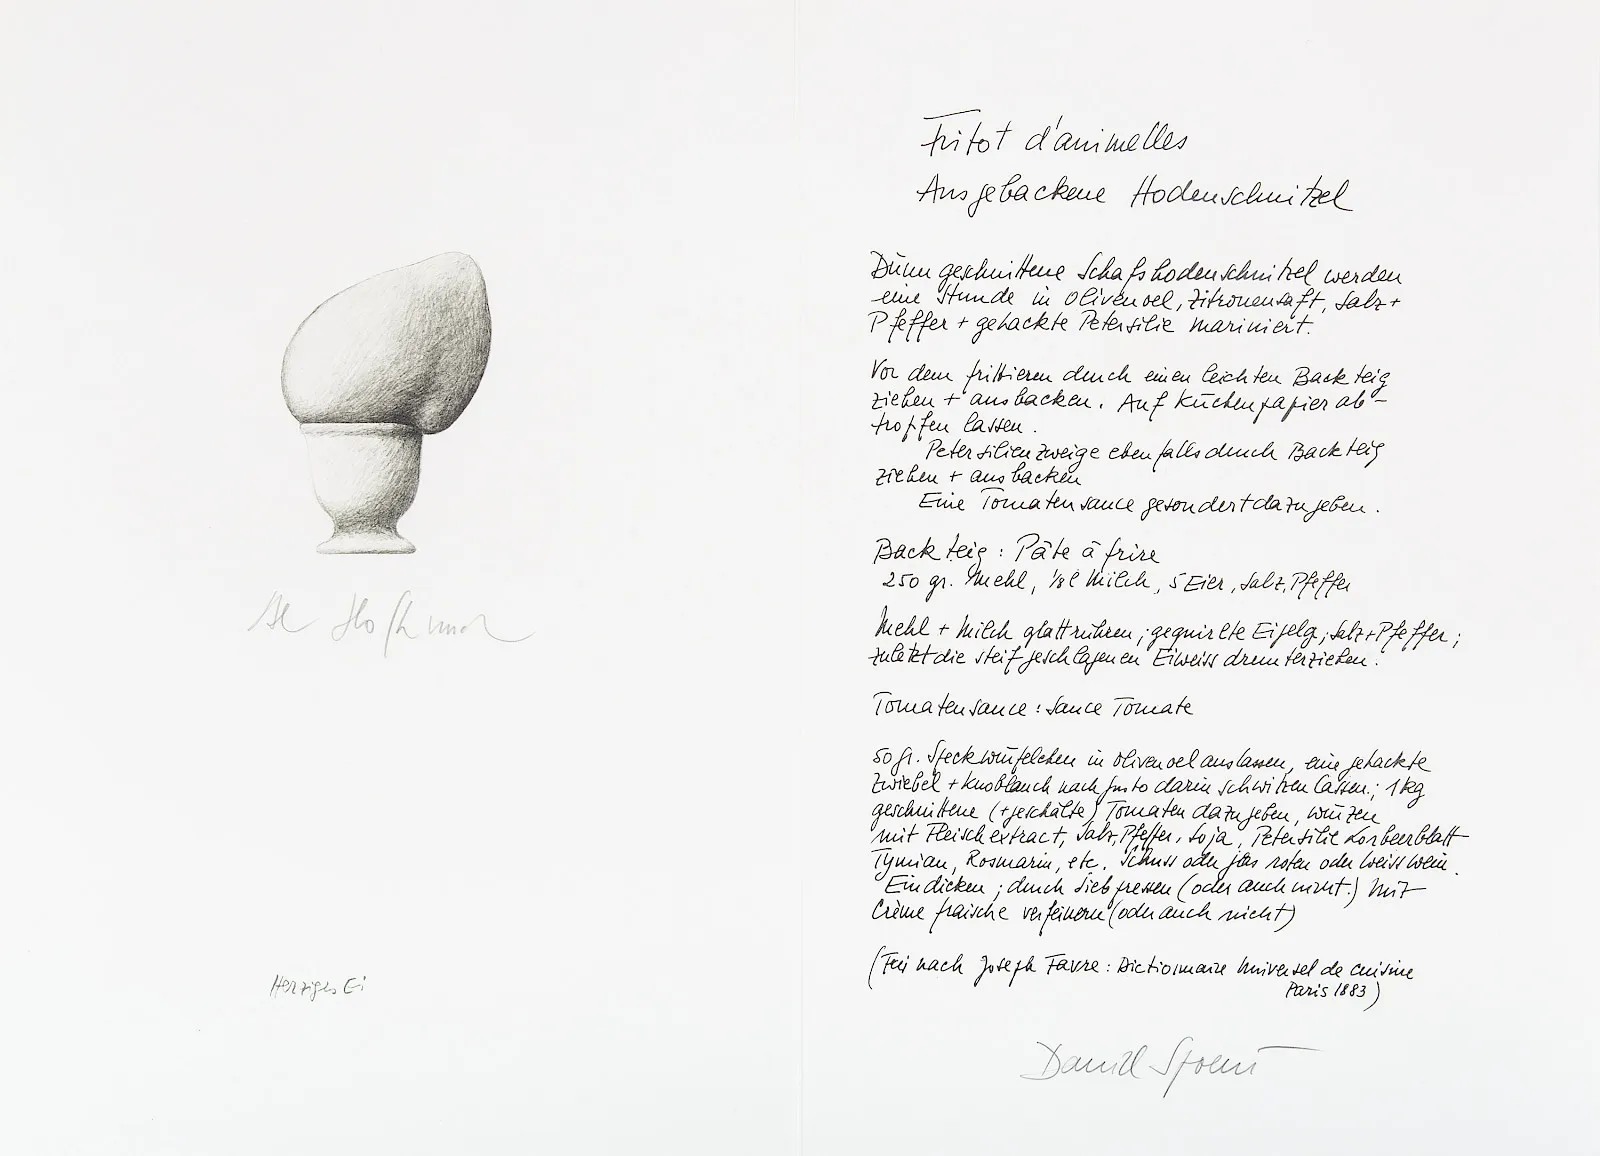 Herziges Ei
Fritot d'animelles
Ausgebackene Hodenschnitzel
Dünn geschnittene Schafshodenschnitzel werden
eine Stunde in Olivenoel, Zitronensaft, Salz +
Pfeffer + gehackte Petersilie mariniert.
Vor dem frittieren durch einen leichten Backteig
ziehen + ausbacken. Auf Küchenpapier ab-
tropfen lassen.
Petersilienzweige ebenfalls durch Backteig
ziehen + ausbacken
Eine Tomatensauce gesondert dazugeben.
Backteig : Pâte à frire
250 gr. Mehl, 1/8 l Milch, 5 Eier, Salz, Pfeffer
Mehl + Milch glattrühren; gequirlte Eigelg; Salz + Pfeffer;
zuletzt die steif geschlagenen Eiweiss drunterziehen.
Tomatensauce : Sauce Tomate
50 gr. Speckwürfelchen in Olivenoel auslassen, eine gehackte
Zwiebel + Knoblauch nach Gusto darin schwitzen lassen; 1 kg
geschnittene (+ geschälte) Tomaten dazugeben, würzen
mit Fleischextract, Salz, Pfeffer, Soja, Petersilie Lorbeerblatt
Tymian, Rosmarin, etc. Schuss oder Glas roten oder Weisswein.
Eindicken; durch Sieb pressen (oder auch nicht) Mit
Crème fraische verfeinern (oder auch nicht)
(Frei nach Joseph Favre : Dictionnaire Universel de cuisine
Paris 1883)
Daniel Spoerri